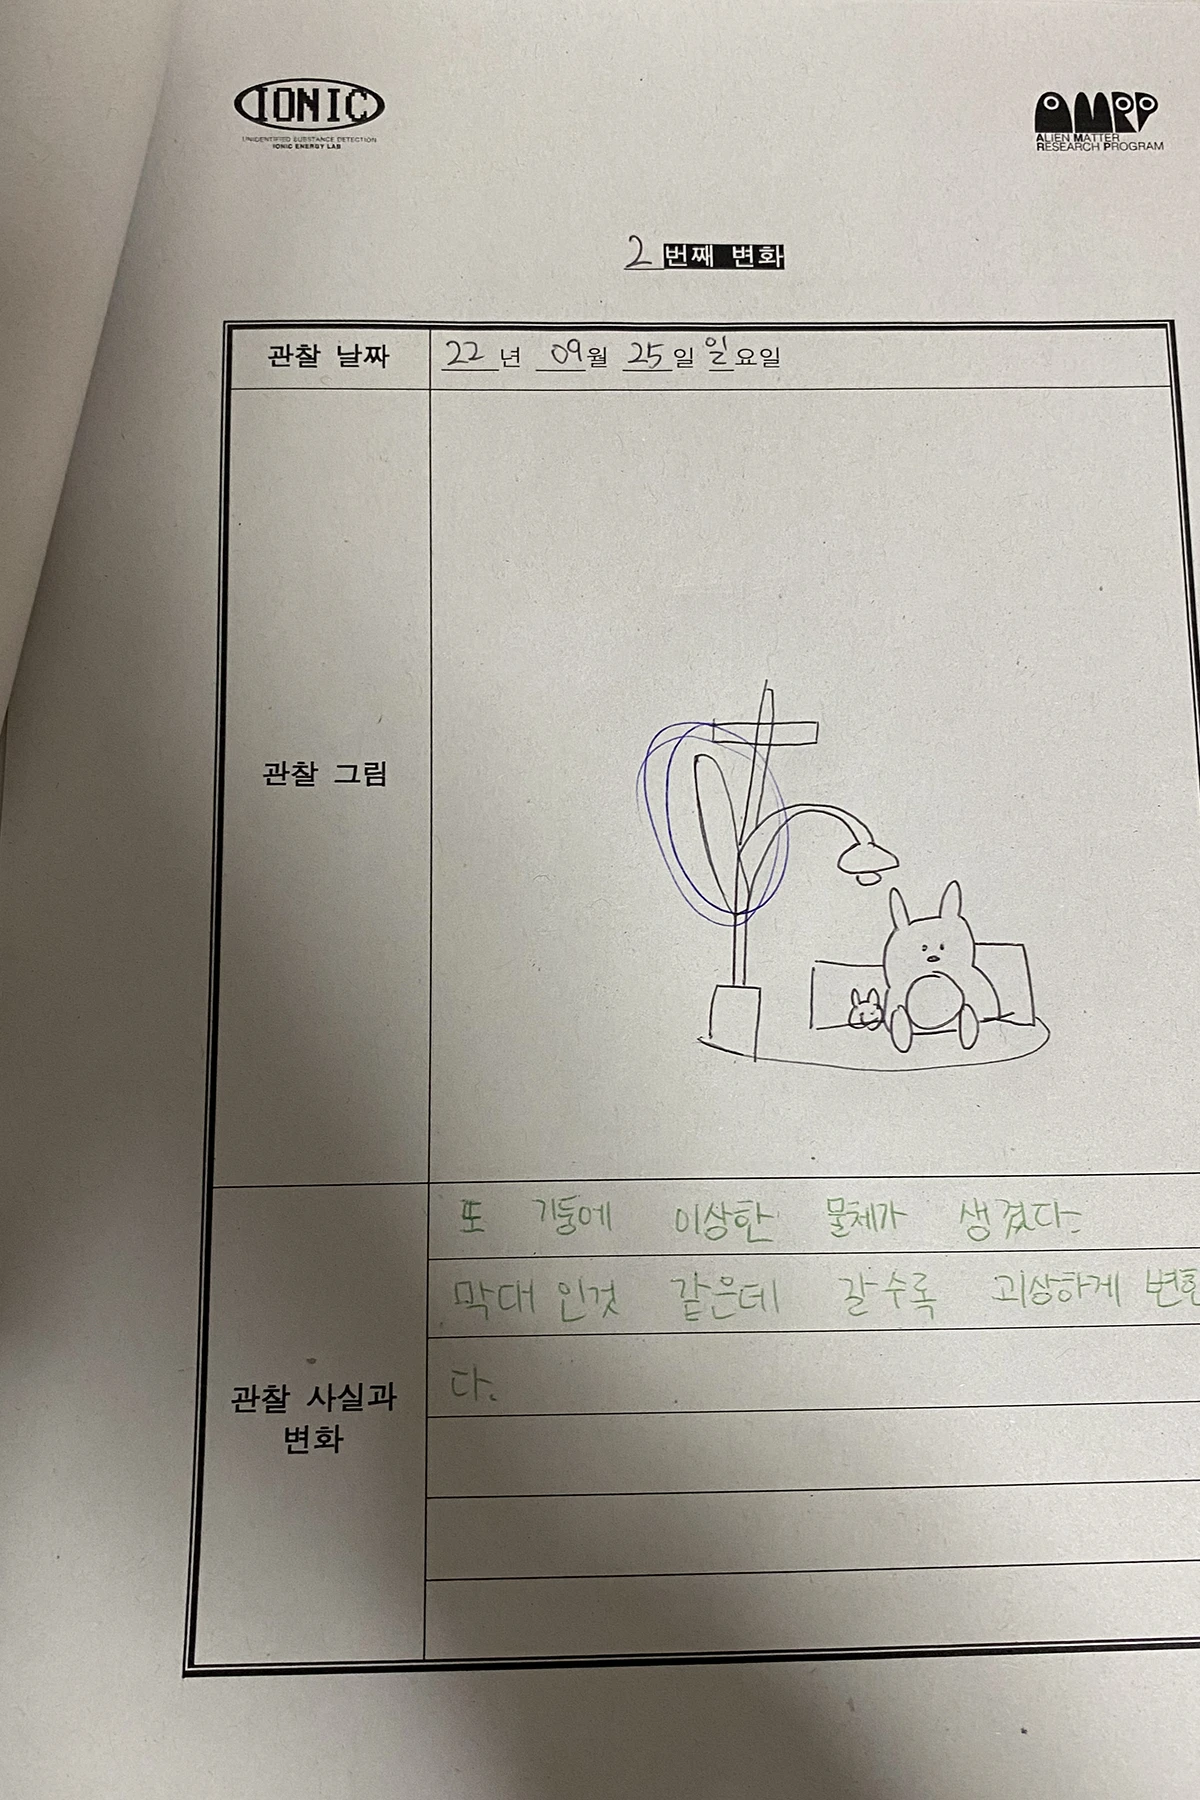 IONIC
UNIDENTIFIED SUBSTANCE DETECTION
IONIC ENERGY LAB
AMRP
ALIEN MATTER
RESEARCH PROGRAM
2 번째 변화
관찰 날짜
22 년 09월 25일 일요일
관찰 그림
또 기둥에 이상한 물체가 생겼다.
막대 인것 같은데 갈수록 괴상하게 변한
다.
관찰 사실과
변화